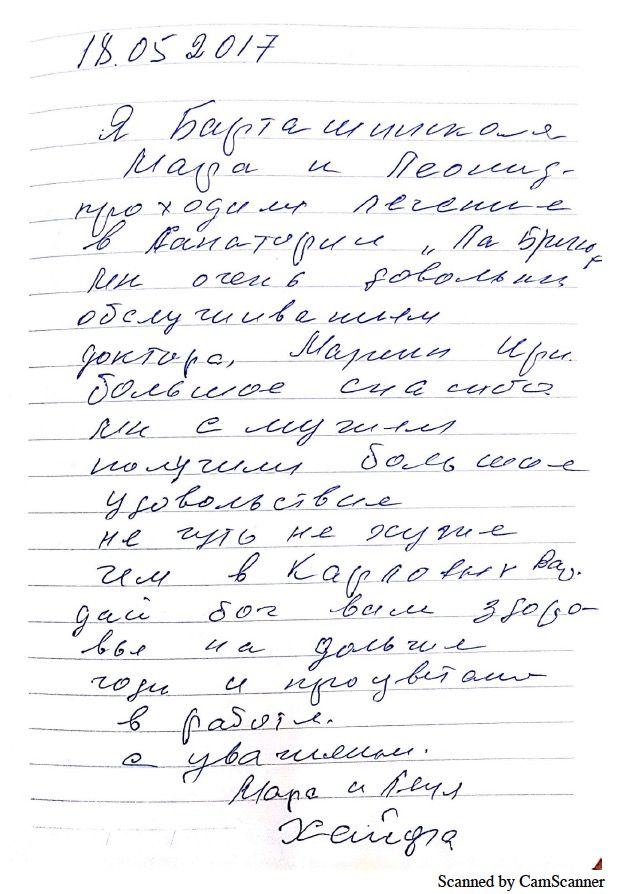 18.05 2017
Я
Мара и Леонид-
проходим лечение
в санатории „Ла
мы очень довольны
обслушиванием
доктора, Марини Ири.
большое спасибо
мы с мушем
получили большое
удовольствие
не чуть не хуже
чем в Карловых Вар.
дай бог вам здоро-
вье на долгие
годы и процветания
в работе.
с уважением.
Мара и
Хейфа
Scanned by CamScanner